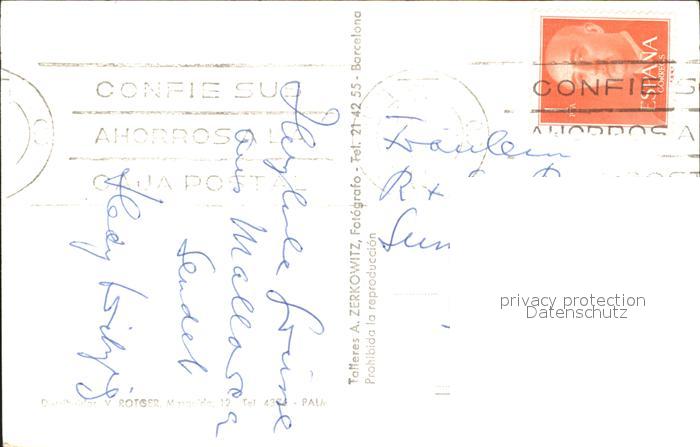 CONFIE SUS
AHORROS A LA
CAJA POSTAL
Herzliche Grüsse
aus Mallorca
sendet
Hedy
Talleres A. ZERKOWITZ, Fotógrafo - Tel. 21 42 55 - Barcelona
Prohibida la reproducción
V. ROTGER, 12 - Tel. - PALMA
ESPAÑA
CORREOS
PTA
CONFIE S
AHORROS A
Fräulein
privacy protection
Datenschutz